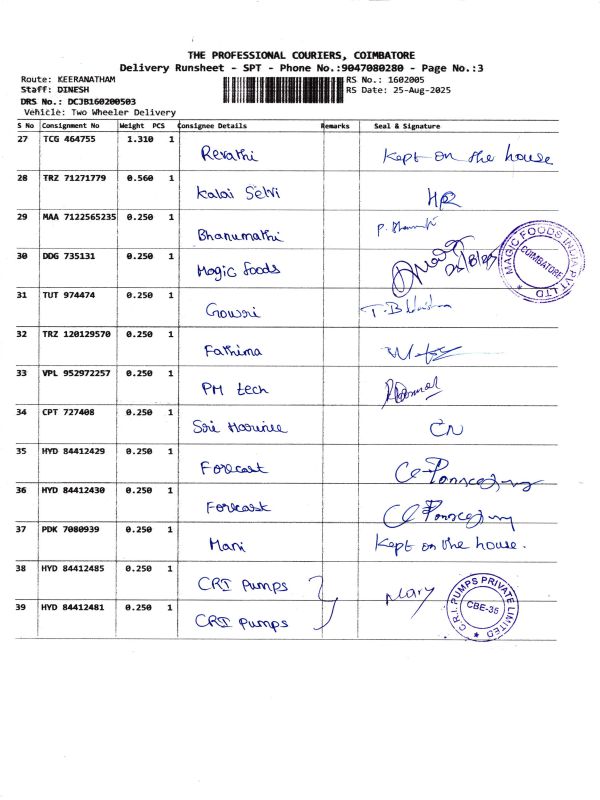 THE PROFESSIONAL COURIERS, COIMBATORE
Delivery Runsheet - SPT - Phone No.:9047080280 - Page No.:3
Route: KEERANATHAM
Staff: DINESH
DRS No.: DCJB160200503
Vehicle: Two Wheeler Delivery
RS No.: 1602005
RS Date: 25-Aug-2025
S No Consignment No Weight PCS Consignee Details Remarks Seal & Signature
27 TCG 464755 1.310 1 Revathi Kept on the house
28 TRZ 71271779 0.560 1 Kalai Selvi HR
29 MAA 7122565235 0.250 1 Bhanumathi
30 DDG 735131 0.250 1 Magic foods MAGIC FOODS INDIA PVT LTD COIMBATORE
31 TUT 974474 0.250 1 Gowri
32 TRZ 120129570 0.250 1 Fathima
33 VPL 952972257 0.250 1 PM tech
34 CPT 727408 0.250 1 Sri CN
35 HYD 84412429 0.250 1 Forecast
36 HYD 84412430 0.250 1 Forecast
37 PDK 7080939 0.250 1 Mani Kept on the house.
38 HYD 84412485 0.250 1 CRI Pumps Mary C.R.I. PUMPS PRIVATE LIMITED CBE-35
39 HYD 84412481 0.250 1 CRI Pumps